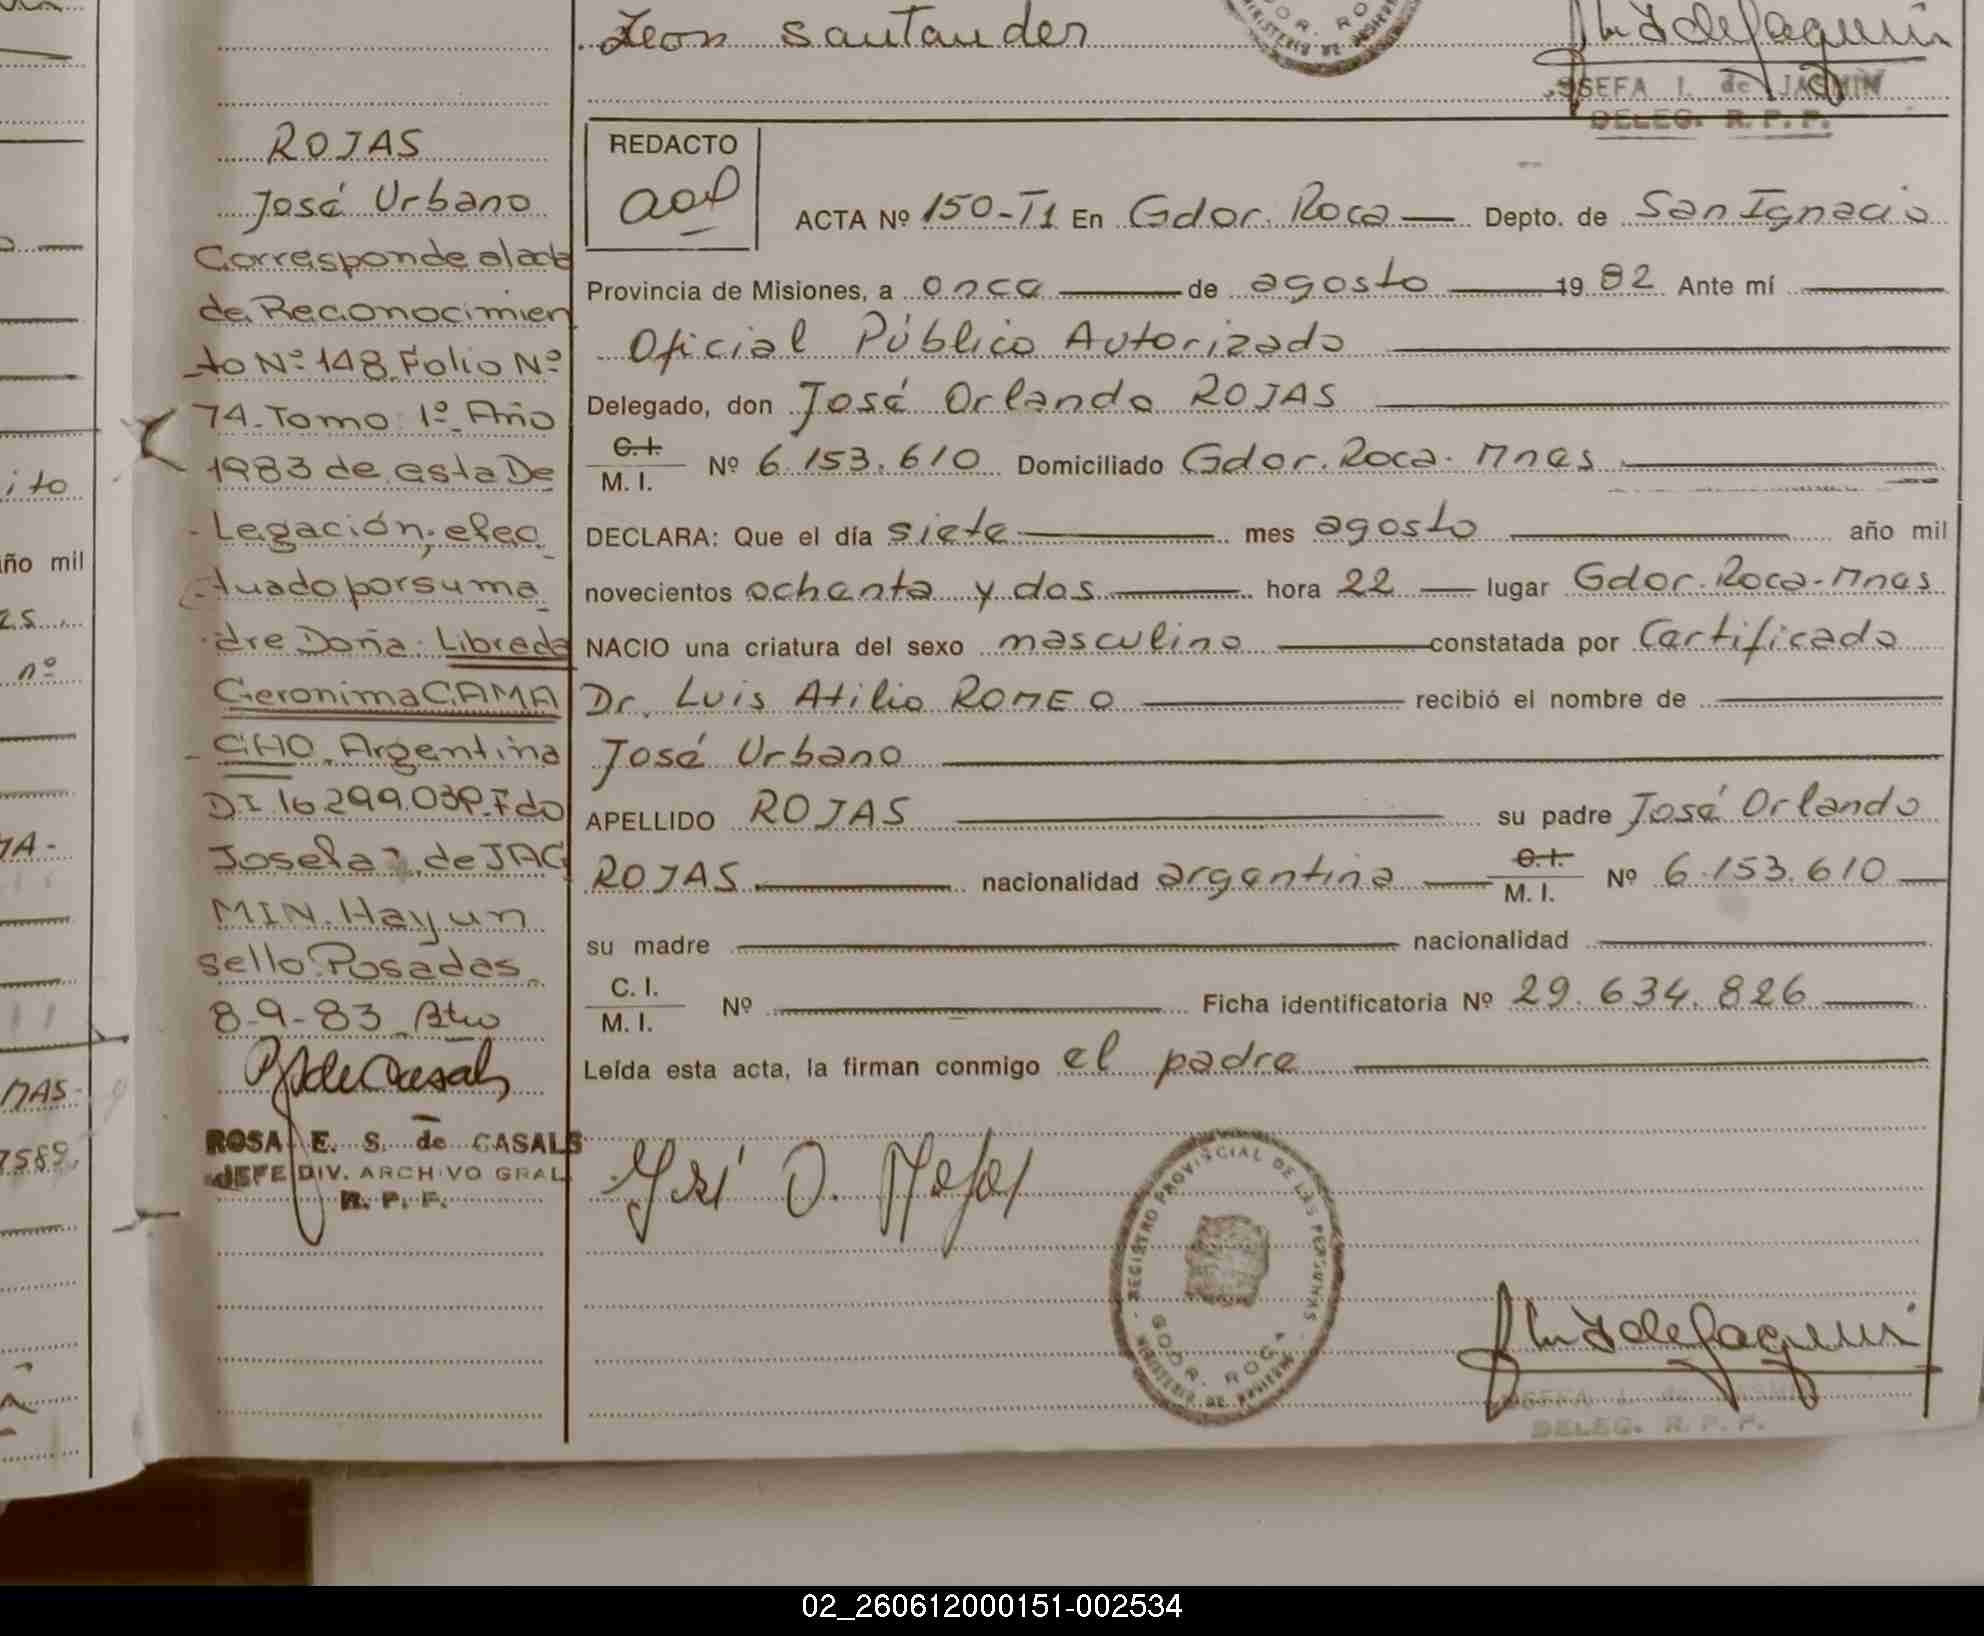 Leon Santander
JOSEFA I. de JASMIN
DELEG. R. P. P.
ROJAS
José Urbano
Corresponde al acta
de Reconocimien
to Nº 148 Folio Nº
74 Tomo 1º Año
1983 de esta De
Legación, efec
tuado por su ma
dre Doña Libreda
Geronima CAMA
CHO Argentina
DI 16.299.039. Fdo
Josefa I. de JAC
MIN. Hay un
sello Posadas
8-9-83
ROSA E. S. de CASALS
JEFE DIV. ARCHIVO GRAL.
R. P. P.
REDACTO
ACTA Nº 150-T1 En Gdor. Roca Depto. de San Ignacio
Provincia de Misiones, a once de agosto 19 82 Ante mí
Oficial Público Autorizado
Delegado, don José Orlando ROJAS
C.I.
M. I. Nº 6.153.610 Domiciliado Gdor. Roca. Mnes
DECLARA: Que el día siete mes agosto año mil
novecientos ochenta y dos hora 22 lugar Gdor. Roca-Mnes
NACIO una criatura del sexo masculino constatada por Certificado
Dr. Luis Atilio ROMEO recibió el nombre de
José Urbano
APELLIDO ROJAS su padre José Orlando
ROJAS nacionalidad argentina C.I.
M. I. Nº 6.153.610
su madre nacionalidad
C. I.
M. I. Nº Ficha identificatoria Nº 29.634.826
Leída esta acta, la firman conmigo el padre
José O. Rojas
REGISTRO PROVINCIAL DE LAS PERSONAS
GDOR. ROCA
MINISTERIO DE GOBIERNO
JOSEFA I. de JASMIN
DELEG. R. P. P.
ito
año mil
nº
MAS-
7589
02_260612000151-002534